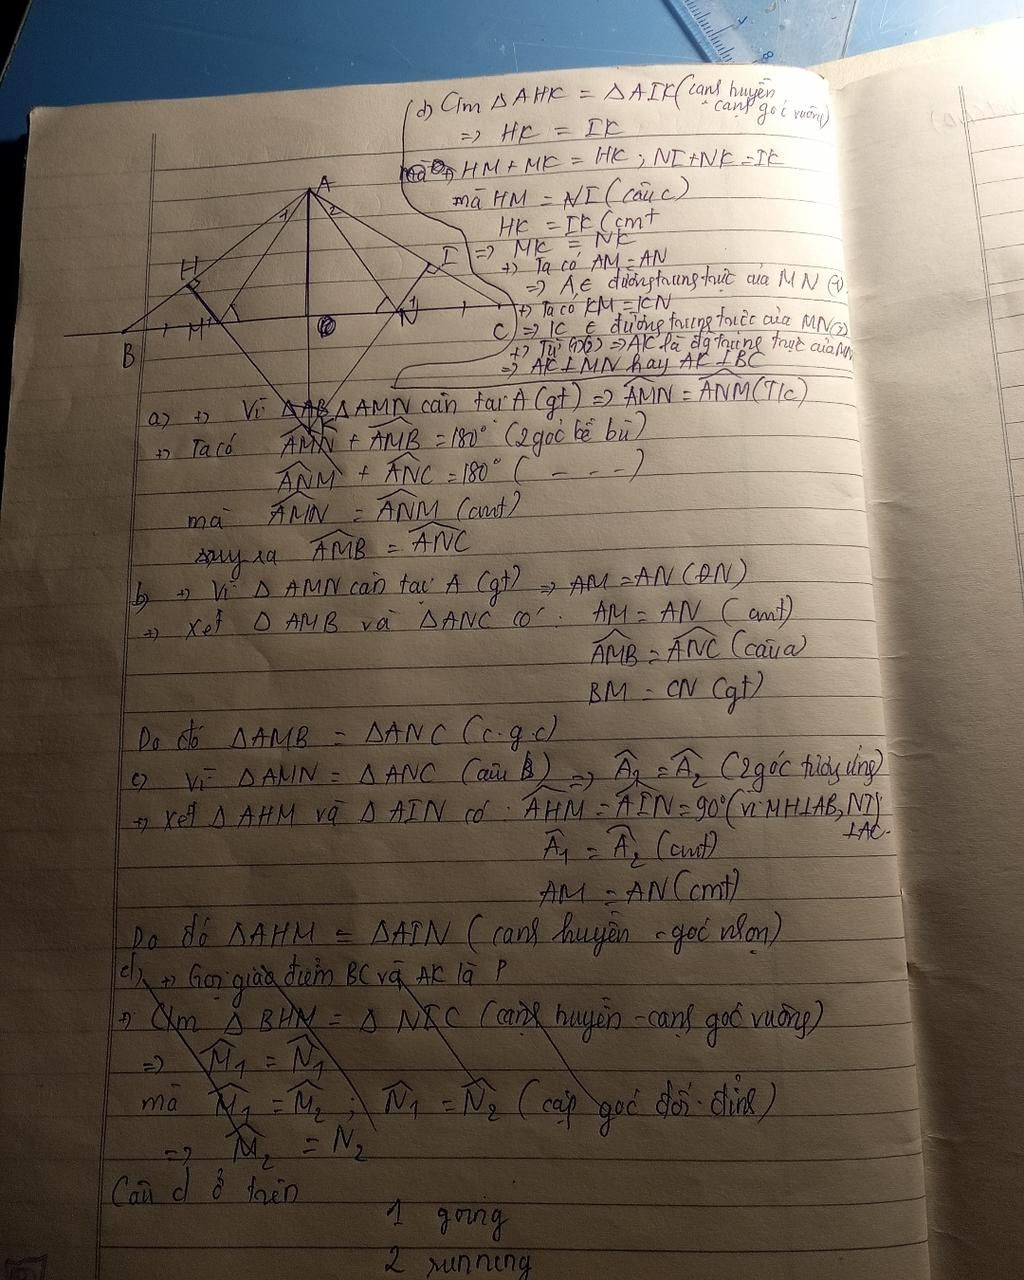 (d) C/m ΔAHK = ΔAIK (cạnh huyền
- cạnh góc vuông)
=> HK = IK
+) HM + MK = HK ; NI + NK = IK
mà HM = NI (câu c)
HK = IK (cmt
=> MK = NK
+) Ta có AM = AN
=> A ∈ đường trung trực của MN (1)
+) Ta có KM = KN
=> K ∈ đường trung trực của MN (2)
+) Từ (1)(2) => AK là đg trung trực của MN
=> AK ⊥ MN hay AK ⊥ BC
A
1 2
H
I
B M 1 N C
K
a) +) Vì ΔAB ΔAMN cân tại A (gt) => \widehat{AMN} = \widehat{ANM} (T/c)
+) Ta có \widehat{AMN} + \widehat{AMB} = 180° (2 góc kề bù)
\widehat{ANM} + \widehat{ANC} = 180° ( - - - )
mà \widehat{AMN} = \widehat{ANM} (cmt)
suy ra \widehat{AMB} = \widehat{ANC}
b) +) Vì Δ AMN cân tại A (gt) => AM = AN (ĐN)
+) Xét Δ AMB và ΔANC có : AM = AN (cmt)
\widehat{AMB} = \widehat{ANC} (câu a)
BM = CN (gt)
Do đó ΔAMB = ΔANC (c.g.c)
c) Vì ΔAMN = ΔANC (câu b) => \widehat{A}_1 = \widehat{A}_2 (2 góc tương ứng)
+) Xét Δ AHM và Δ AIN có : \widehat{AHM} = \widehat{AIN} = 90° (vì MH⊥AB, NI
⊥AC.
\widehat{A}_1 = \widehat{A}_2 (cmt)
AM = AN (cmt)
Do đó ΔAHM = ΔAIN (cạnh huyền - góc nhọn)
d) +) Gọi giao điểm BC và AK là P
+) C/m Δ BHM = Δ NIC (cạnh huyền - cạnh góc vuông)
=> \widehat{M}_1 = \widehat{N}_1
mà \widehat{M}_1 = \widehat{M}_2 ; \widehat{N}_1 = \widehat{N}_2 (cặp góc đối đỉnh)
=> \widehat{M}_2 = N_2
Câu d ở trên
1 going
2 running